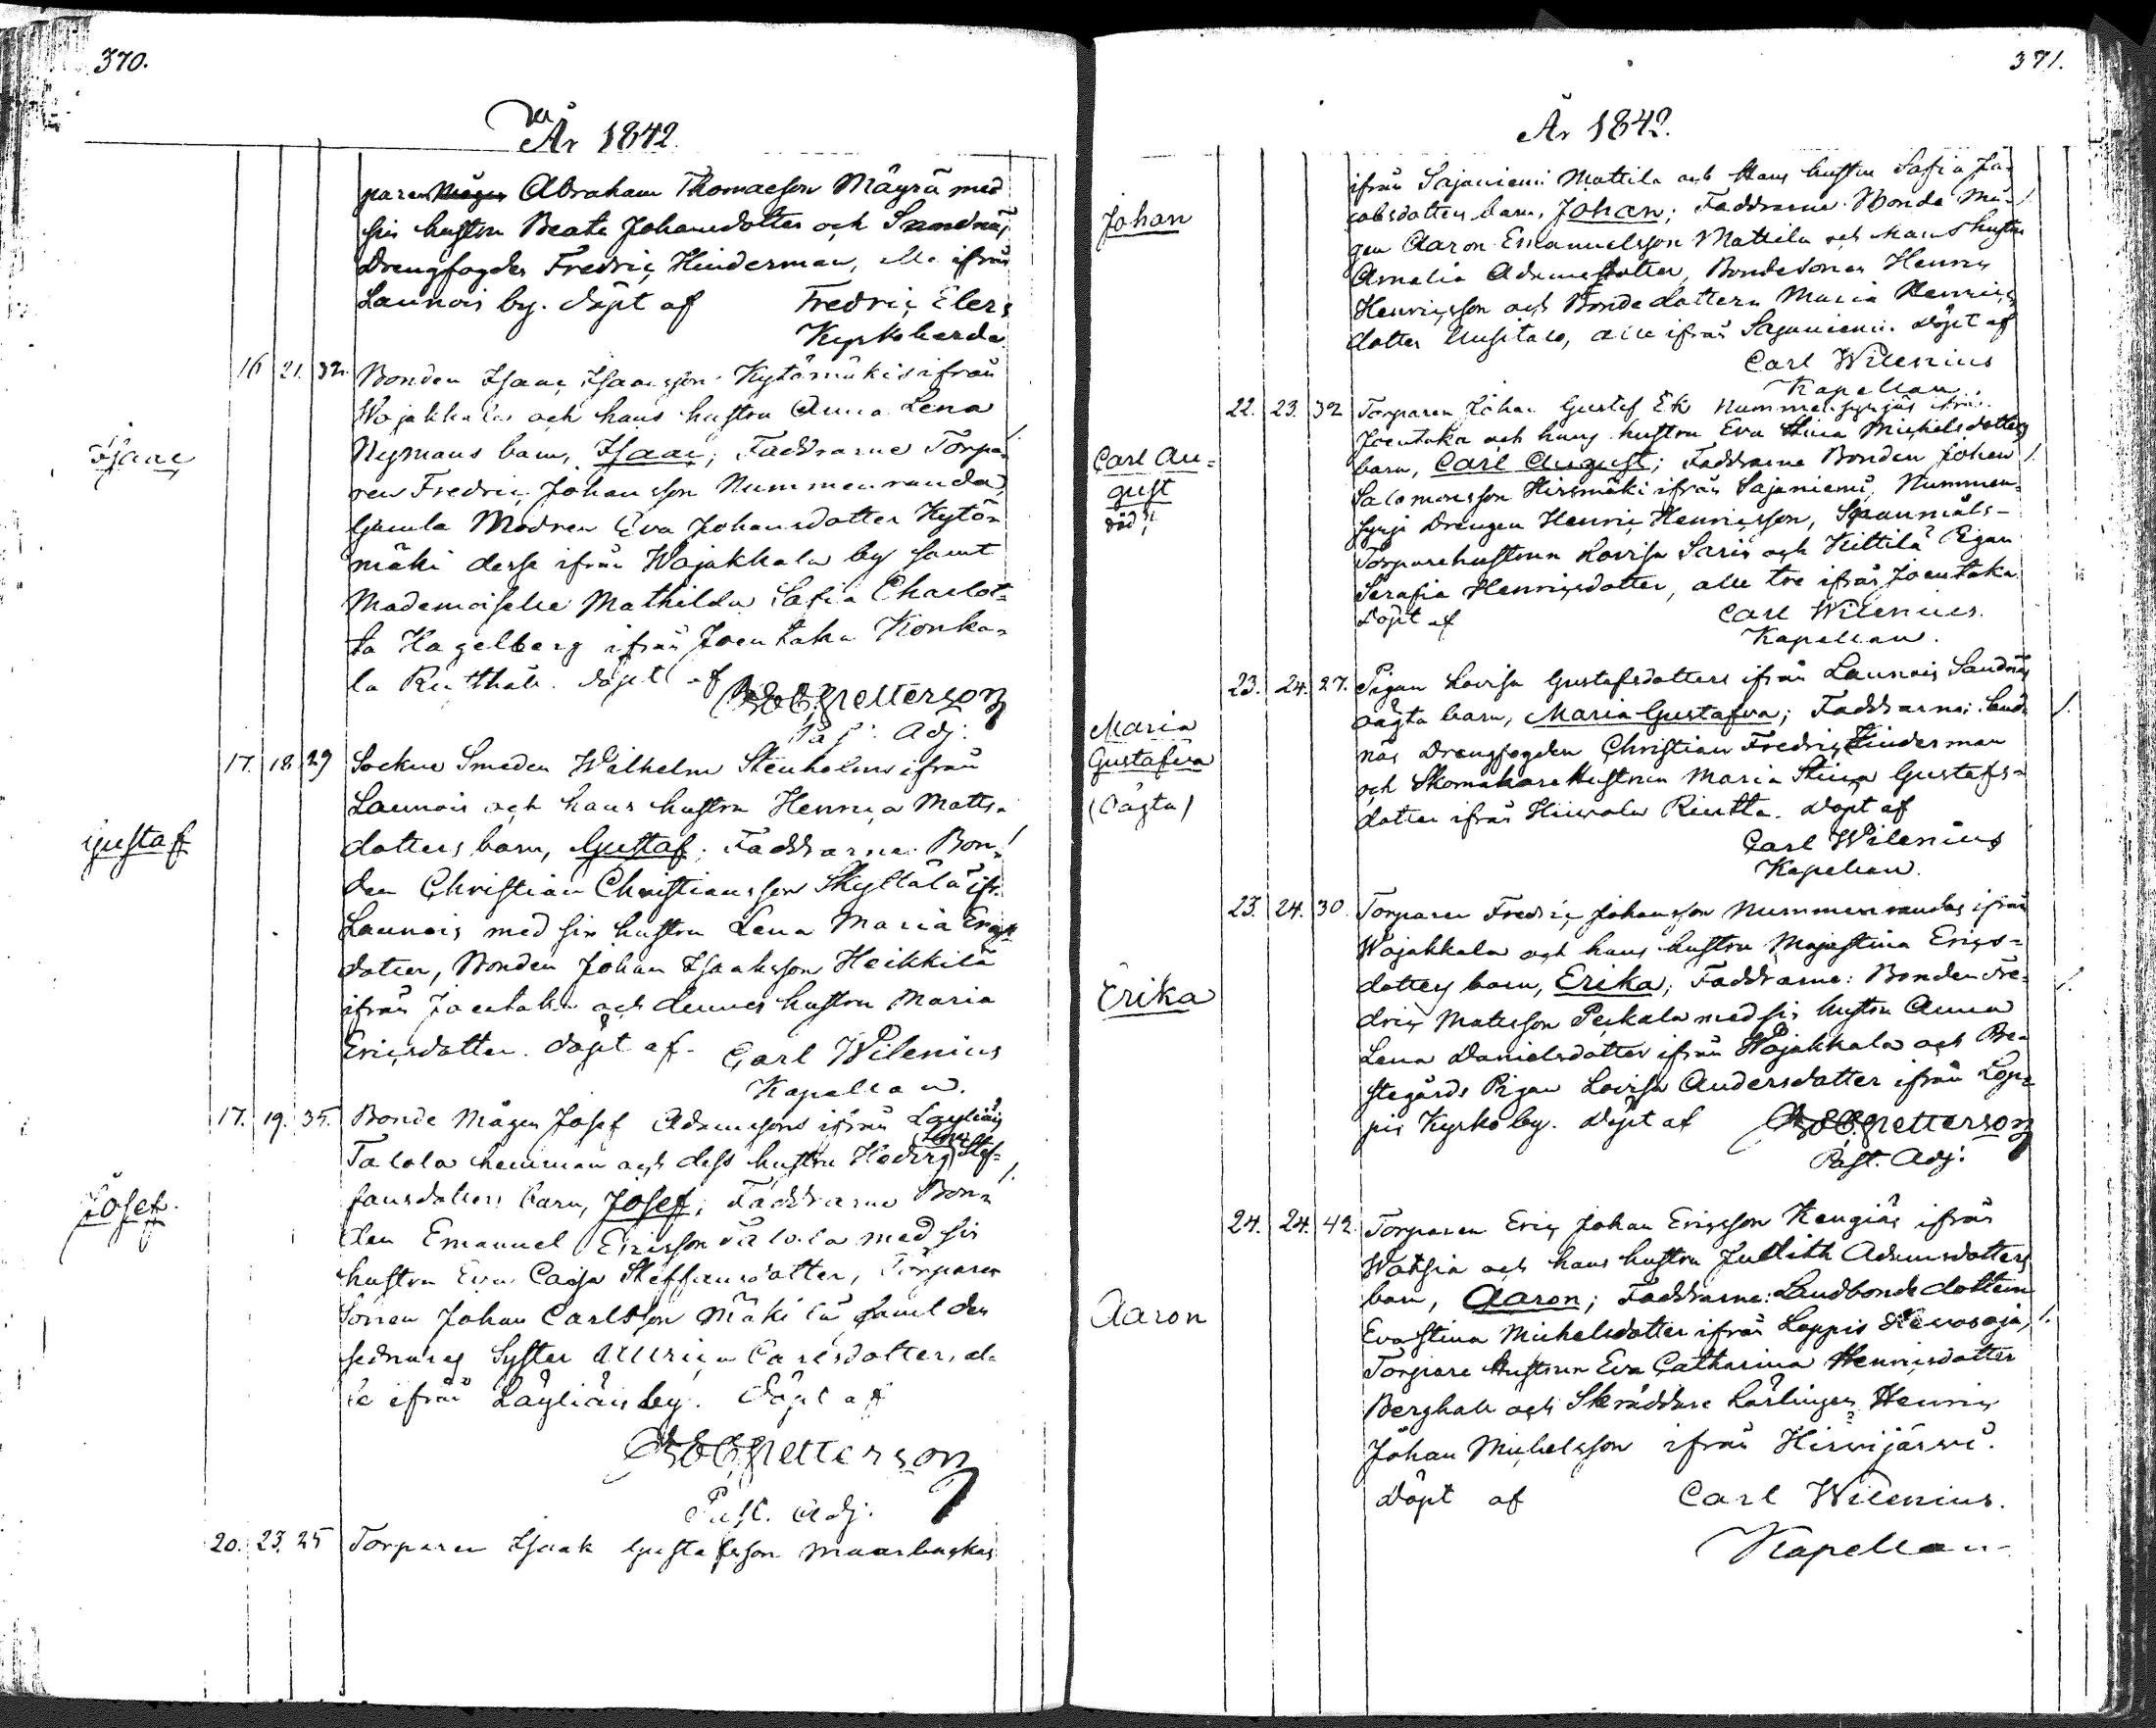 370.
År 1842.
paren Abraham Thomaeson Mäyrä med
sin hustru Beata Johansdotter och Sandnäs
Drengfogden Fredric Hinderman, alla ifrån
Launois by. döpt af Fredric Elers
Kyrkoherde
16 21. 32. Bonden Isaac Isaacsson Kytömäkis ifrån
Wojakkala och hans hustru Anna Lena
Isaac
Nymans barn, Isaac; Faddrarne Torpa-
ren Fredric Johansson Nummenranda,
Gamla Modren Eva Johansdotter Kytö-
mäki desse ifrån Wojakkala by samt
Mademoiselle Mathilda Sofia Charlot-
ta Hagelberg ifrån Joentaka Konka-
la Rusthåll. döpt af Petterson
Past. Adj.
17. 18. 29 Sockne Smeden Wilhelm Stenholms ifrån
Launois och hans hustru Henrica Matts-
Gustaf
dotters barn, Gustaf; Faddrarne Bon-
den Christian Christiansson Skyttälä ifr.
Launois med sin hustru Lena Maria Erics
dotter, Bonden Johan Isaaksson Heikkilä
ifrån Joentaka och dennes hustru Maria
Ericsdotter. döpt af Carl Wilenius
Kapellan.
17. 19. 35. Bonde Mågen Josef Adamssons ifrån Läyliäis
Talola hemman och dess hustru Hedvig Lena Stef-
Josef.
fansdotters barn, Josef; Faddrarne Bon-
den Emanuel Ericsson Talola med sin
hustru Eva Cajsa Steffansdotter, Torpare
Sonen Johan Carlsson Mäkilä samt den
sednares Syster Ulrica Carlsdotter, al-
le ifrån Läyliäis by. Döpt af
Petterson
Past. Adj.
20. 23. 25 Torparen Isaak Gustafsson Maanlaskas
371.
År 1842.
ifrån Sajaniemi Mattila och Hans hustru Sofia Ja-
Johan
cobsdotters barn, Johan; Faddrarne Bonde Må-
gen Aaron Emanuelsson Mattila och Hans hustru
Amalia Adamsdotter, Bondesonen Henric
Henricsson och Bondedottern Maria Henrics
dotter Uusitalo, alle ifrån Sajaniemi. döpt af
Carl Wilenius
Kapellan.
22. 23. 32 Torparen Johan Gustaf Ek Nummensyrjäs ifrån
Joentaka och hans hustru Eva Stina Michelsdotters
Carl Au=
gust
död
barn, Carl August; Faddrarne Bonden Johan
Salomonsson Hirsmäki ifrån Sajaniemi, Nummen-
syrjä Drengen Henric Henricsson,
Torparehustrun Lovisa Saris och Kittilä Pigan
Serafia Henricsdotter, alle tre ifrån Joentaka.
Döpt af Carl Wilenius.
Kapellan.
23. 24. 27. Pigan Lovisa Gustafsdotters ifrån Launois Sandnäs
Maria
Gustafva
(Oägta)
oägta barn, Maria Gustafva; Faddrarne: Sand-
näs Drengfogden Christian Fredric Hinderman
och Skomakare Hustrun Maria Stina Gustafs-
dotter ifrån Hiivola Rientta. döpt af
Carl Wilenius
Kapellan.
23. 24. 30. Torparen Fredric Johansson Nummenrandas ifrån
Wojakkala och hans hustru Majastina Erics-
Erika
dotters barn, Erika; Faddrarne: Bonden Fre-
dric Matsson Peckala med sin hustru Anna
Lena Danielsdotter ifrån Wojakkala och Pre-
stegårds Pigan Lovisa Andersdotter ifrån Lop-
pis Kyrkoby. döpt af Petterson
Past. Adj.
24. 24. 42. Torparen Eric Johan Ericsson Kengiäs ifrån
Watsia och hans hustru Judith Adamsdotters
Aaron
barn, Aaron; Faddrarne: Landbonde dottern
Evastina Michelsdotter ifrån Loppis Hevosoja,
Torpare Hustrun Eva Catharina Henricsdotter
Berghall och Skräddare Lärlingen Henric
Johan Michelsson ifrån Hirvijärvi.
döpt af Carl Wilenius.
Kapellan.